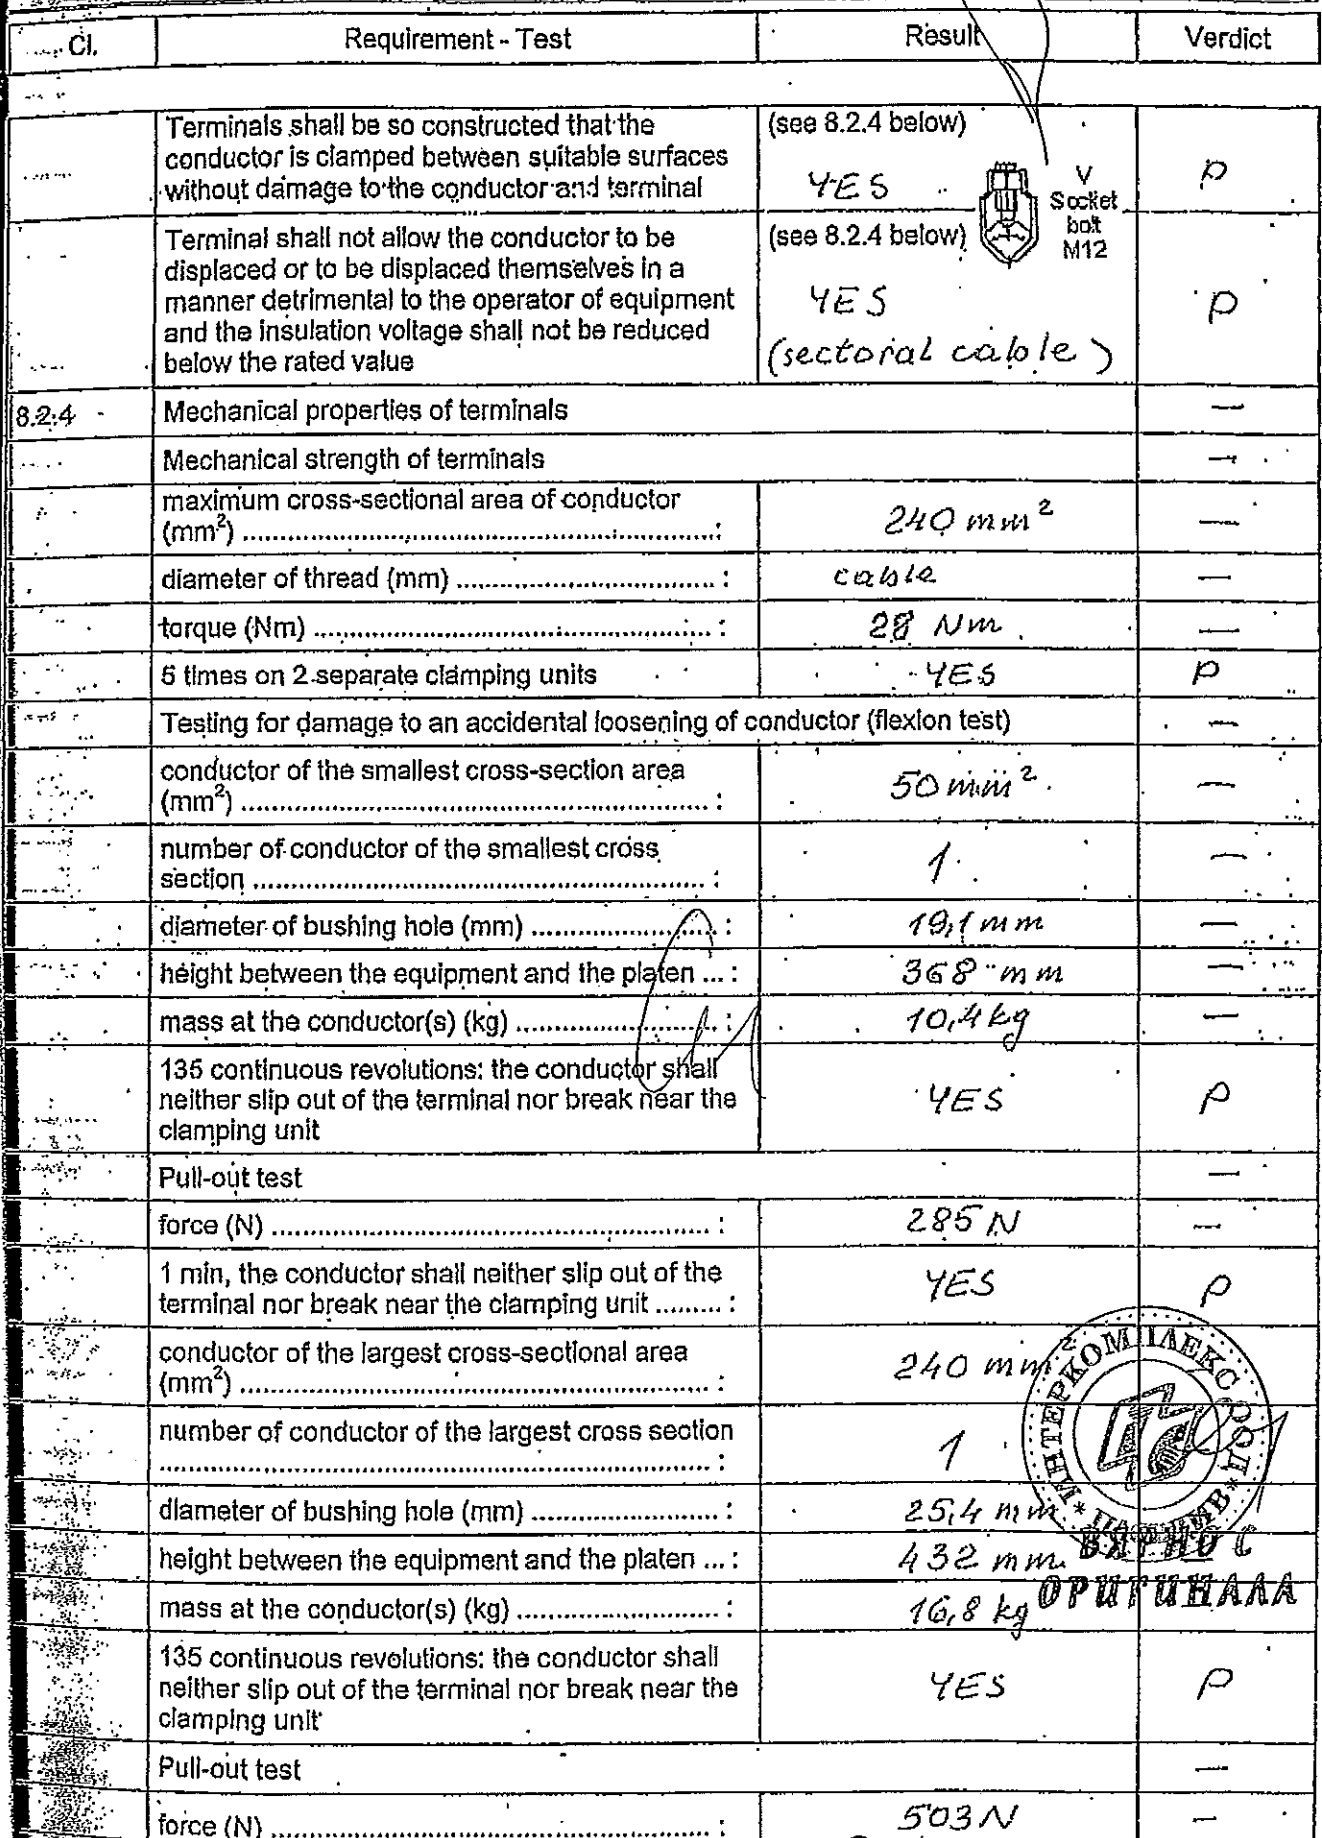 Cl. Requirement - Test Result Verdict
Terminals shall be so constructed that the
conductor is clamped between suitable surfaces
without damage to the conductor and terminal
(see 8.2.4 below)
YES
V
Socket
bolt
M12
P
Terminal shall not allow the conductor to be
displaced or to be displaced themselves in a
manner detrimental to the operator of equipment
and the insulation voltage shall not be reduced
below the rated value
(see 8.2.4 below)
YES
(sectoral cable)
P
8.2.4 Mechanical properties of terminals —
Mechanical strength of terminals —
maximum cross-sectional area of conductor
(mm²) ..... : 240 mm² —
diameter of thread (mm) ..... : cable —
torque (Nm) ..... : 28 Nm —
5 times on 2 separate clamping units YES P
Testing for damage to an accidental loosening of conductor (flexion test) —
conductor of the smallest cross-section area
(mm²) ..... : 50 mm² —
number of conductor of the smallest cross
section ..... : 1 —
diameter of bushing hole (mm) ..... : 19,1 mm —
height between the equipment and the platen ... : 368 mm —
mass at the conductor(s) (kg) ..... : 10,4 kg —
135 continuous revolutions: the conductor shall
neither slip out of the terminal nor break near the
clamping unit
YES P
Pull-out test —
force (N) ..... : 285 N —
1 min, the conductor shall neither slip out of the
terminal nor break near the clamping unit ..... : YES P
conductor of the largest cross-sectional area
(mm²) ..... : 240 mm²
number of conductor of the largest cross section
..... : 1
diameter of bushing hole (mm) ..... : 25,4 mm
height between the equipment and the platen ... : 432 mm
mass at the conductor(s) (kg) ..... : 16,8 kg
ИНТЕРКОМПЛЕКС ООД
ВЯРНО С
ОРИГИНАЛА
135 continuous revolutions: the conductor shall
neither slip out of the terminal nor break near the
clamping unit
YES P
Pull-out test —
force (N) ..... : 503 N —